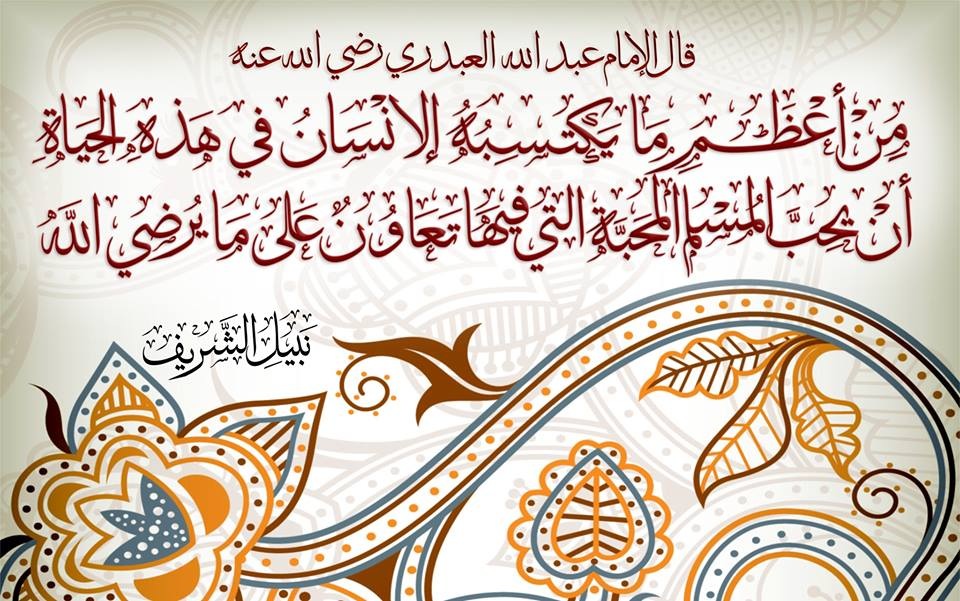 قال الإمام عبد الله العبدري رضي الله عنه
مِنْ أَعْظَمِ مَا يَكْتَسِبُهُ الإنْسَانُ في هَذِهِ الحَيَاةِ
أَنْ يُحِبَّ المُسْلِمُ المَحَبَّةَ التي فيهَا تَعَاوُنٌ عَلَى مَا يُرضِي اللَّهَ
نَبِيل الشَّرِيف